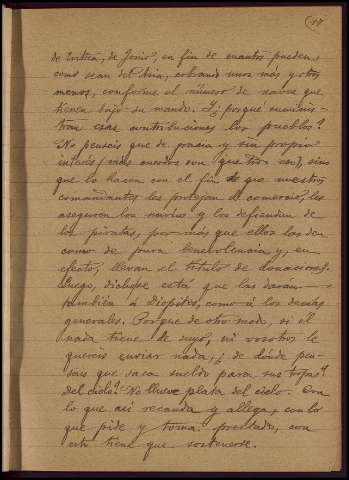 de Eritrea, de Jonio, en fin de cuantos pueden,
como sean del Asia, cobrando unos más y otros
menos, conforme el número de naves que
tienen bajo su mando. Y ¿porqué suminis-
tran esas contribuciones los pueblos?
No penseis que de gracia y sin propio
interés, sino
que lo hacen con el fin de que nuestros
comandantes les protejan el comercio, les
aseguren los navíos y los defiendan de
los piratas, por más que ellos las den
como de pura benevolencia y, en
efecto, llevan el título de donaciones.
Luego, dicho se está que las daran
también á Diopites, como á los demás
generales. Porque de otro modo, si él
nada tiene de suyo, ni vosotros le
quereis enviar nada, ¿de dónde pen-
sais que saca sueldo para sus tropas?
¿Del cielo? No llueve plata del cielo. Con
lo que así recauda y allega, con lo
que pide y toma prestado, con
esto tiene que sostenerse.